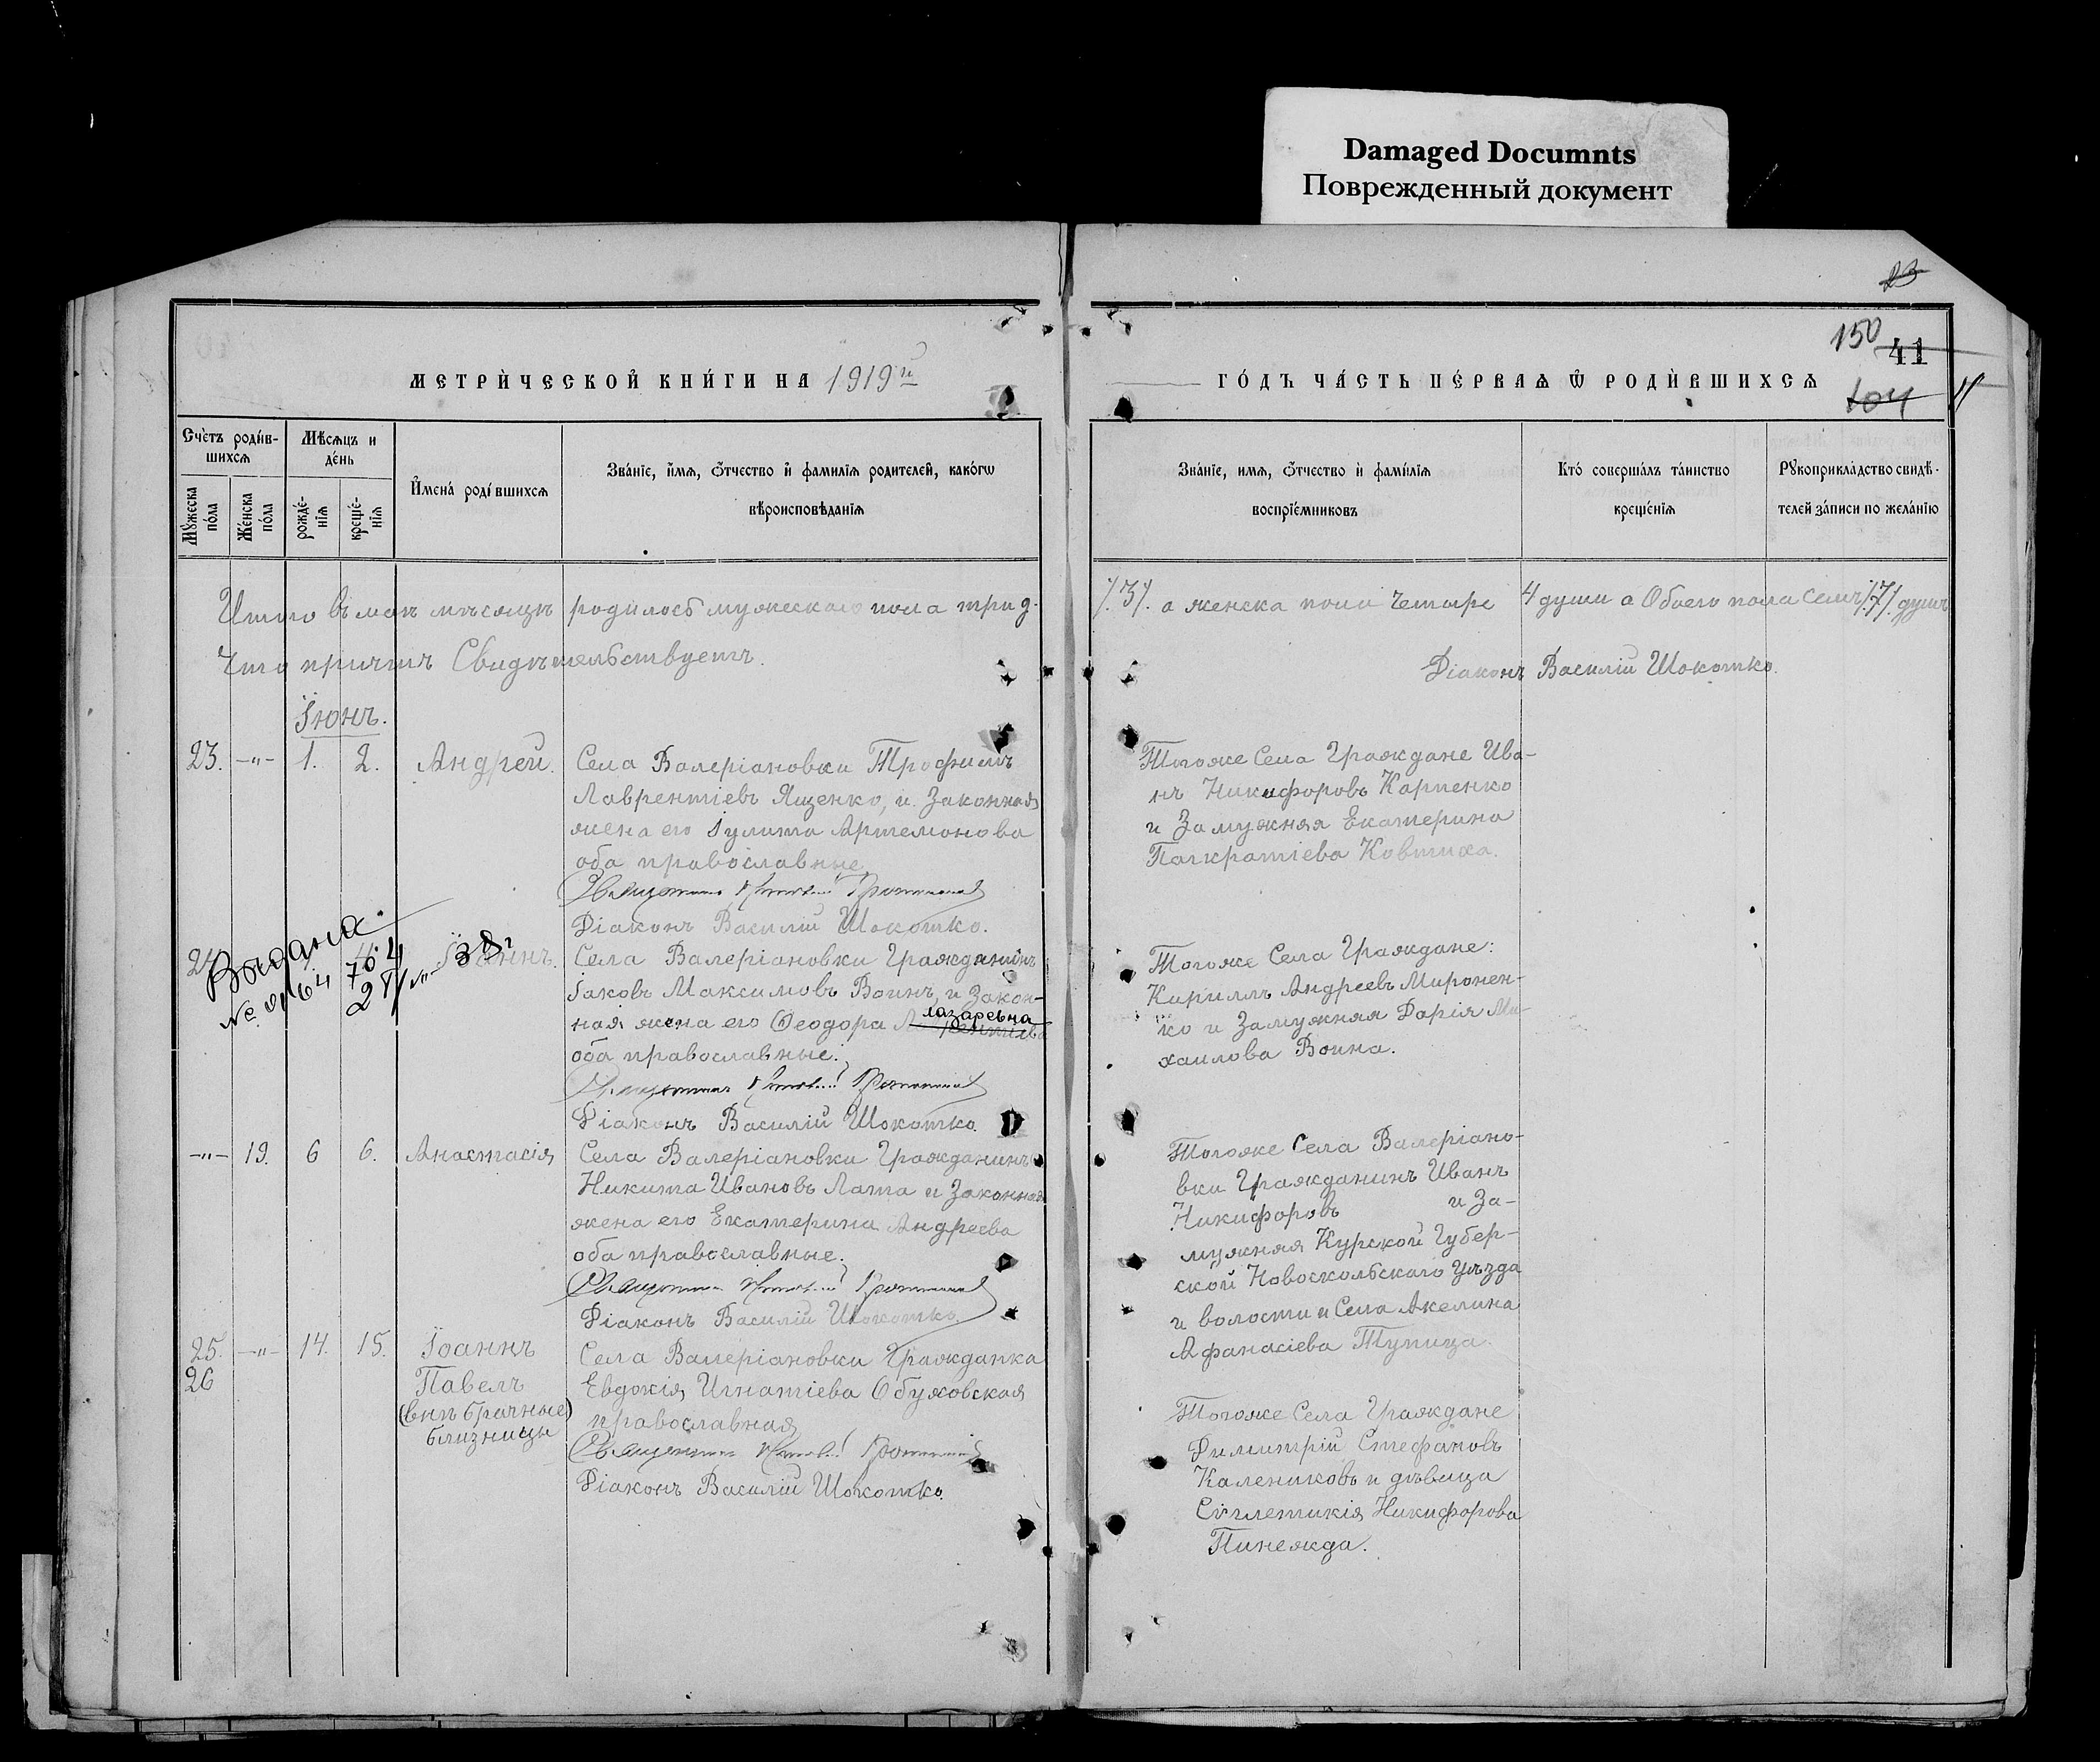 Damaged Documnts
Поврежденный документ
23
150
41
104
МЕТРИ́ЧЕСКОЙ КНИ́ГИ НА 1919й
ГО́ДЪ ЧА́СТЬ ПЕ́РВАѦ Ѿ РОДИ́ВШИХСѦ
Сче́тъ роди́в-
шихсѧ
Мѣ́сѧцъ и
де́нь
Мꙋ́жеска
по́ла
Же́нска
по́ла
рожде́-
нїѧ
креще́-
нїѧ
И҆мена́ роди́вшихсѧ
Зва́нїе, и҆́мѧ, ѻ҆́тчество и҆ фами́лїѧ роди́телей, како́гѡ
вѣроисповѣ́данїѧ
Зва́нїе, имѧ, ѻ҆́тчество и҆ фами́лїѧ
воспрїе́мниковъ
Кто́ соверша́лъ та́инство
креще́нїѧ
Рꙋкоприкла́дство свидѣ́-
телей за́писи по жела́нїю
Итого въ маѣ мѣсяцѣ родилось мужескаго пола три д.
/.3/. а женска пола четыре 4 души а Обоего пола семь /.7/. душъ
Что причтъ Свидѣтельствуетъ.
Діаконъ Василій Шокотко.
Їюнь.
23. —"— 1. 2. Андрей.
Села Валеріановки Трофимъ
Лаврентіевъ Ященко, и Законная
жена его Іулита Артемонова
оба православные
Діаконъ Василій Шокотко.
Тогоже Села Граждане Ива-
нъ Никифоровъ Карпенко
и Замужняя Екатерина
Панкратіева Ковтиха.
24 Їоаннъ.
Выдана
Села Валеріановки Гражданинъ
Іаковъ Максимовъ Воинъ, и Закон-
лазаревна
ная жена его Ѳеодора
оба православные.
Діаконъ Василій Шокотко
Тогоже Села Граждане:
Кириллъ Андреевъ Миронен-
ко и Замужняя Дарія Ми-
хаилова Воина.
—"— 19. 6 6. Анастасія
Села Валеріановки Гражданинъ
Никита Ивановъ Лата и Законная
жена его Екатерина Андреева
оба православные.
Діаконъ Василій Шокотко.
Тогоже Села Валеріано-
вки Гражданинъ Иванъ
Никифоровъ и За-
мужняя Курской Губер-
ской Новоскольскаго уѣзда
и волости и Села Акелина
Афанасіева Тупица.
25. —"— 14. 15. Їоаннъ
26 Павелъ
(внѣ брачные)
близнецы
Села Валеріановки Гражданка
Евдокія Игнатіева Обуховская
православная
Діаконъ Василій Шокотко.
Тогоже Села Граждане
Димитрій Стефановъ
Калениковъ и дѣвица
Сѵглетикія Никифорова
Пинежда.